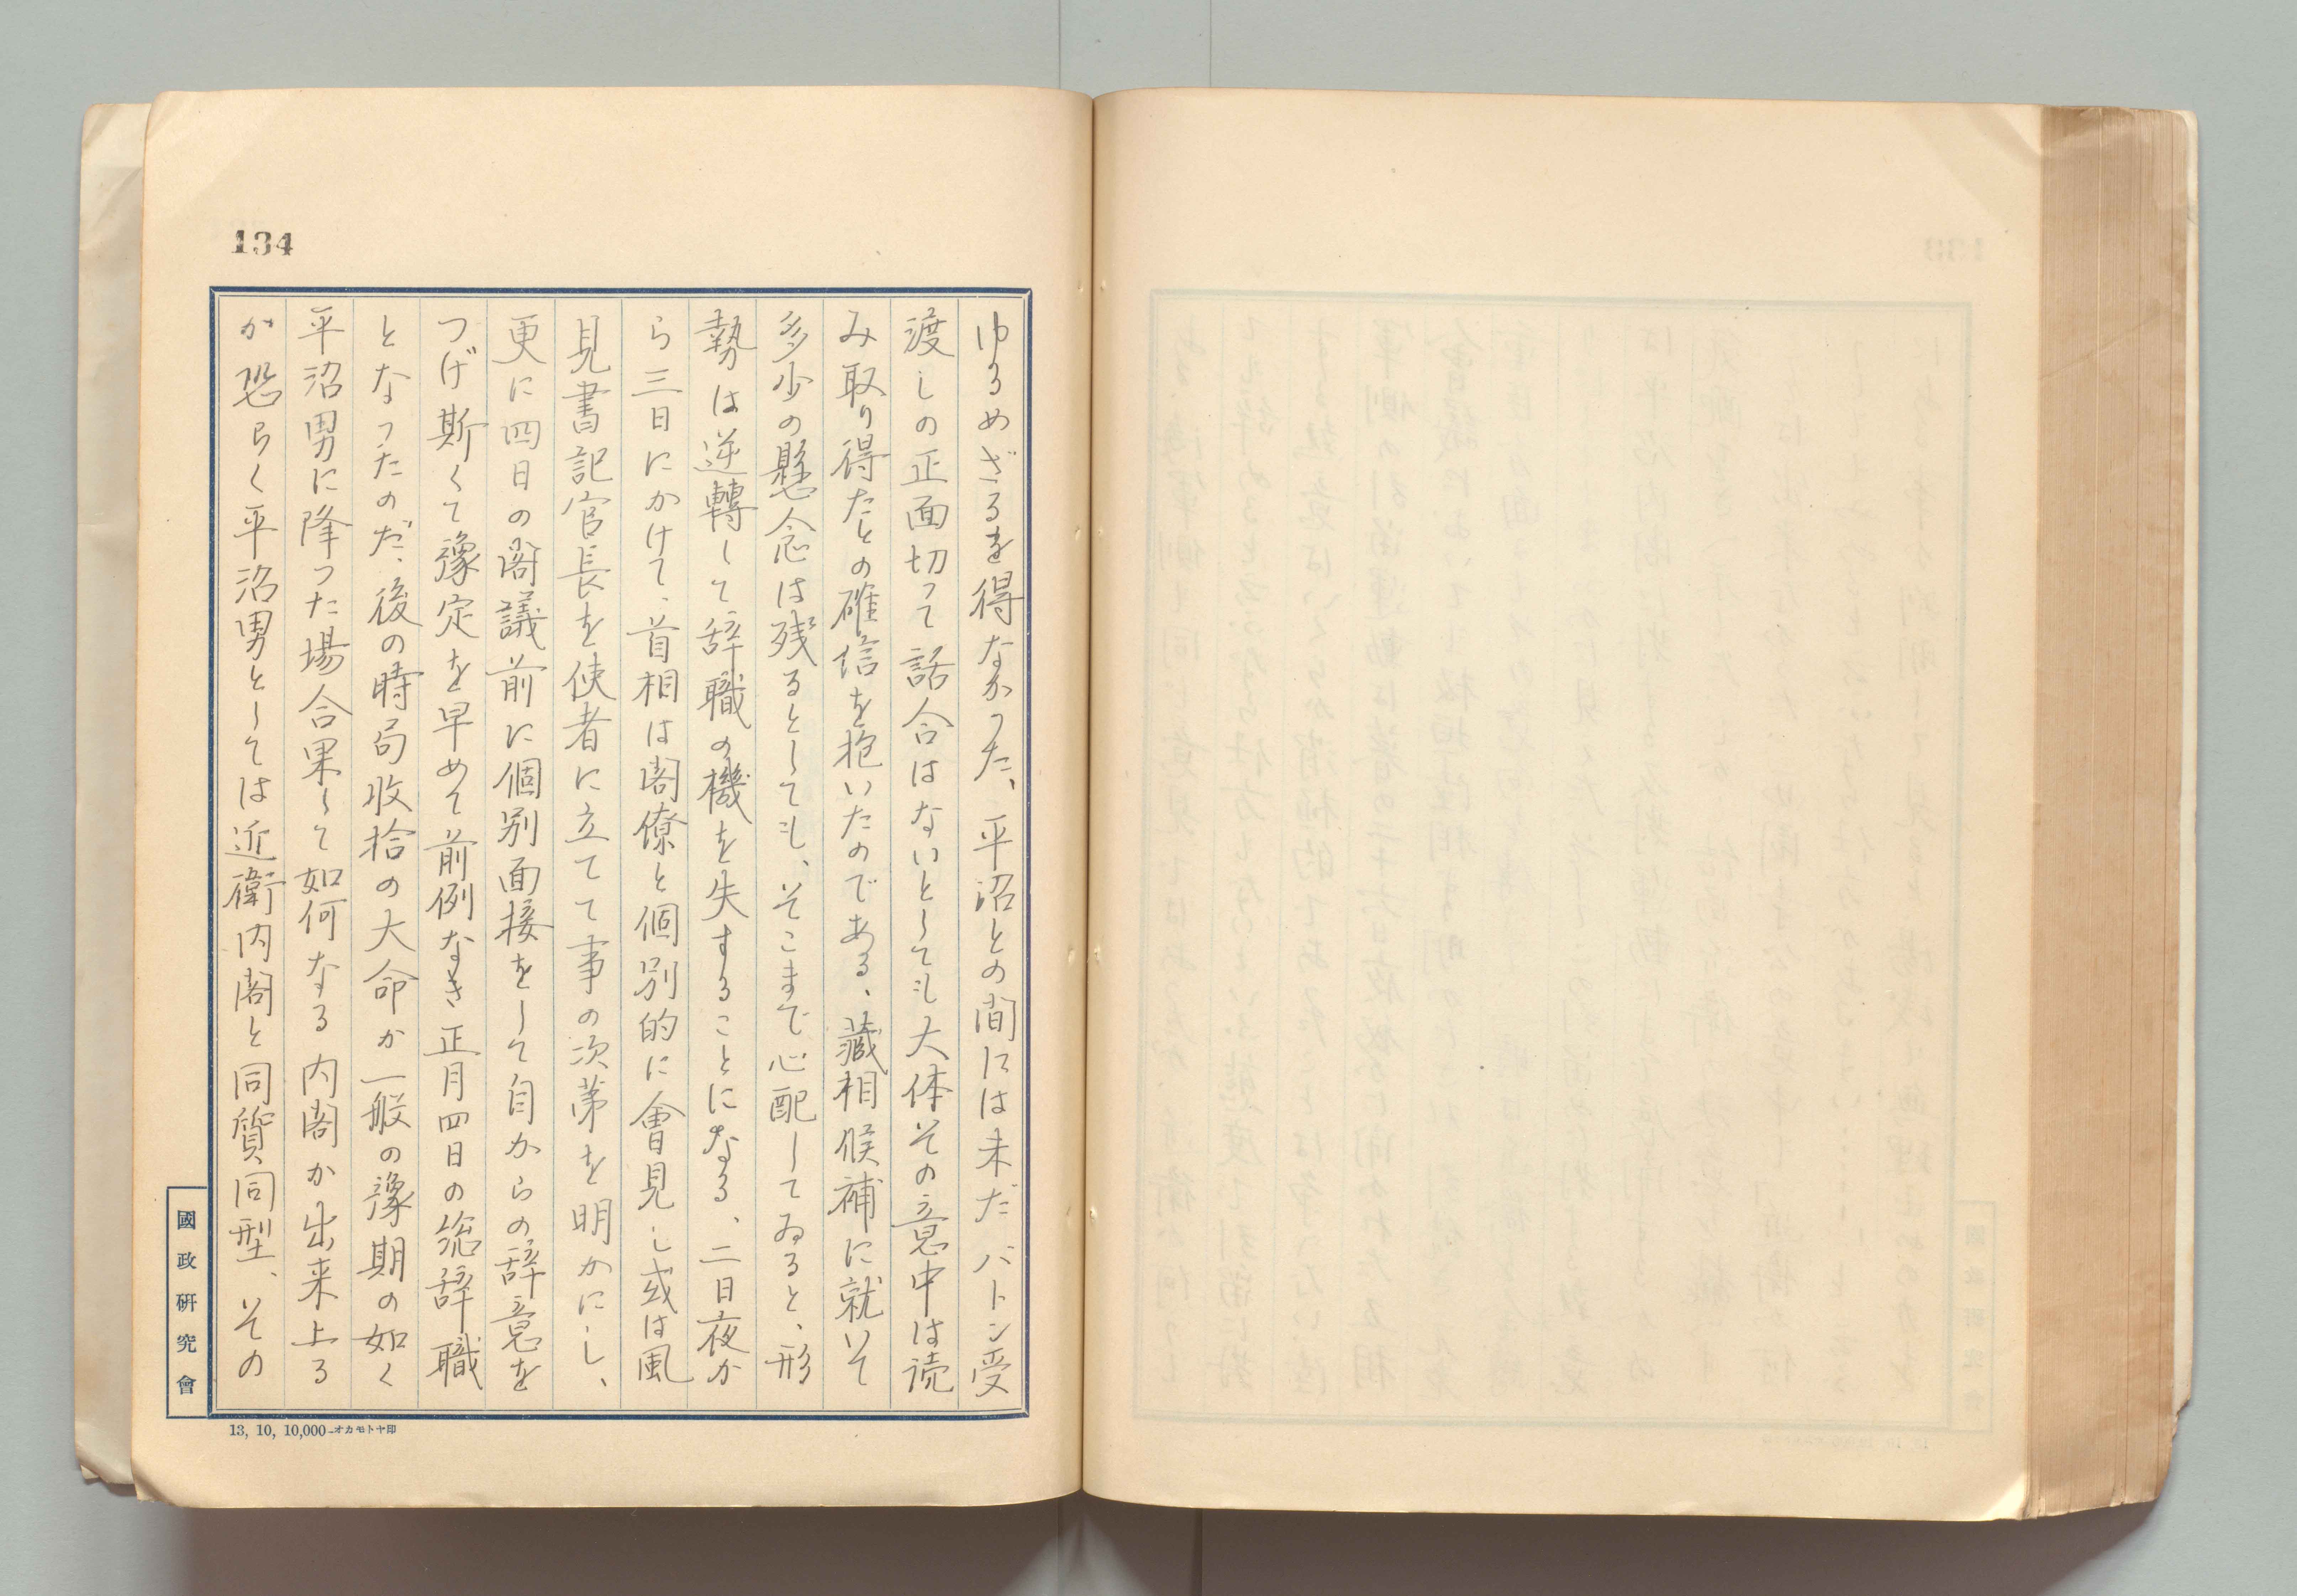 134
ゆるめざるを得なかった、平沼との間には未だバトン受
渡しの正面切って話合はないとしても大体その意中は読
み取り得たとの確信を抱いたのである、藏相候補に就いて
多少の懸念は残るとしても、そこまで心配してゐると、形
勢は逆轉して辞職の機を失することになる、二日夜か
ら三日にかけて、首相は閣僚と個別的に會見し或は風
見書記官長を使者に立てて事の次第を明かにし、
更に四日の閣議前に個別面接をして自からの辞意を
つげ斯くて豫定を早めて前例なき正月四日の総辞職
となったのだ、後の時局收拾の大命か一般の豫期の如く
平沼男に降った場合果して如何なる内閣か出来上る
か恐らく平沼男としては近衞内閣と同質同型、その
國政研究會
13, 10, 10,000—オカモトヤ印